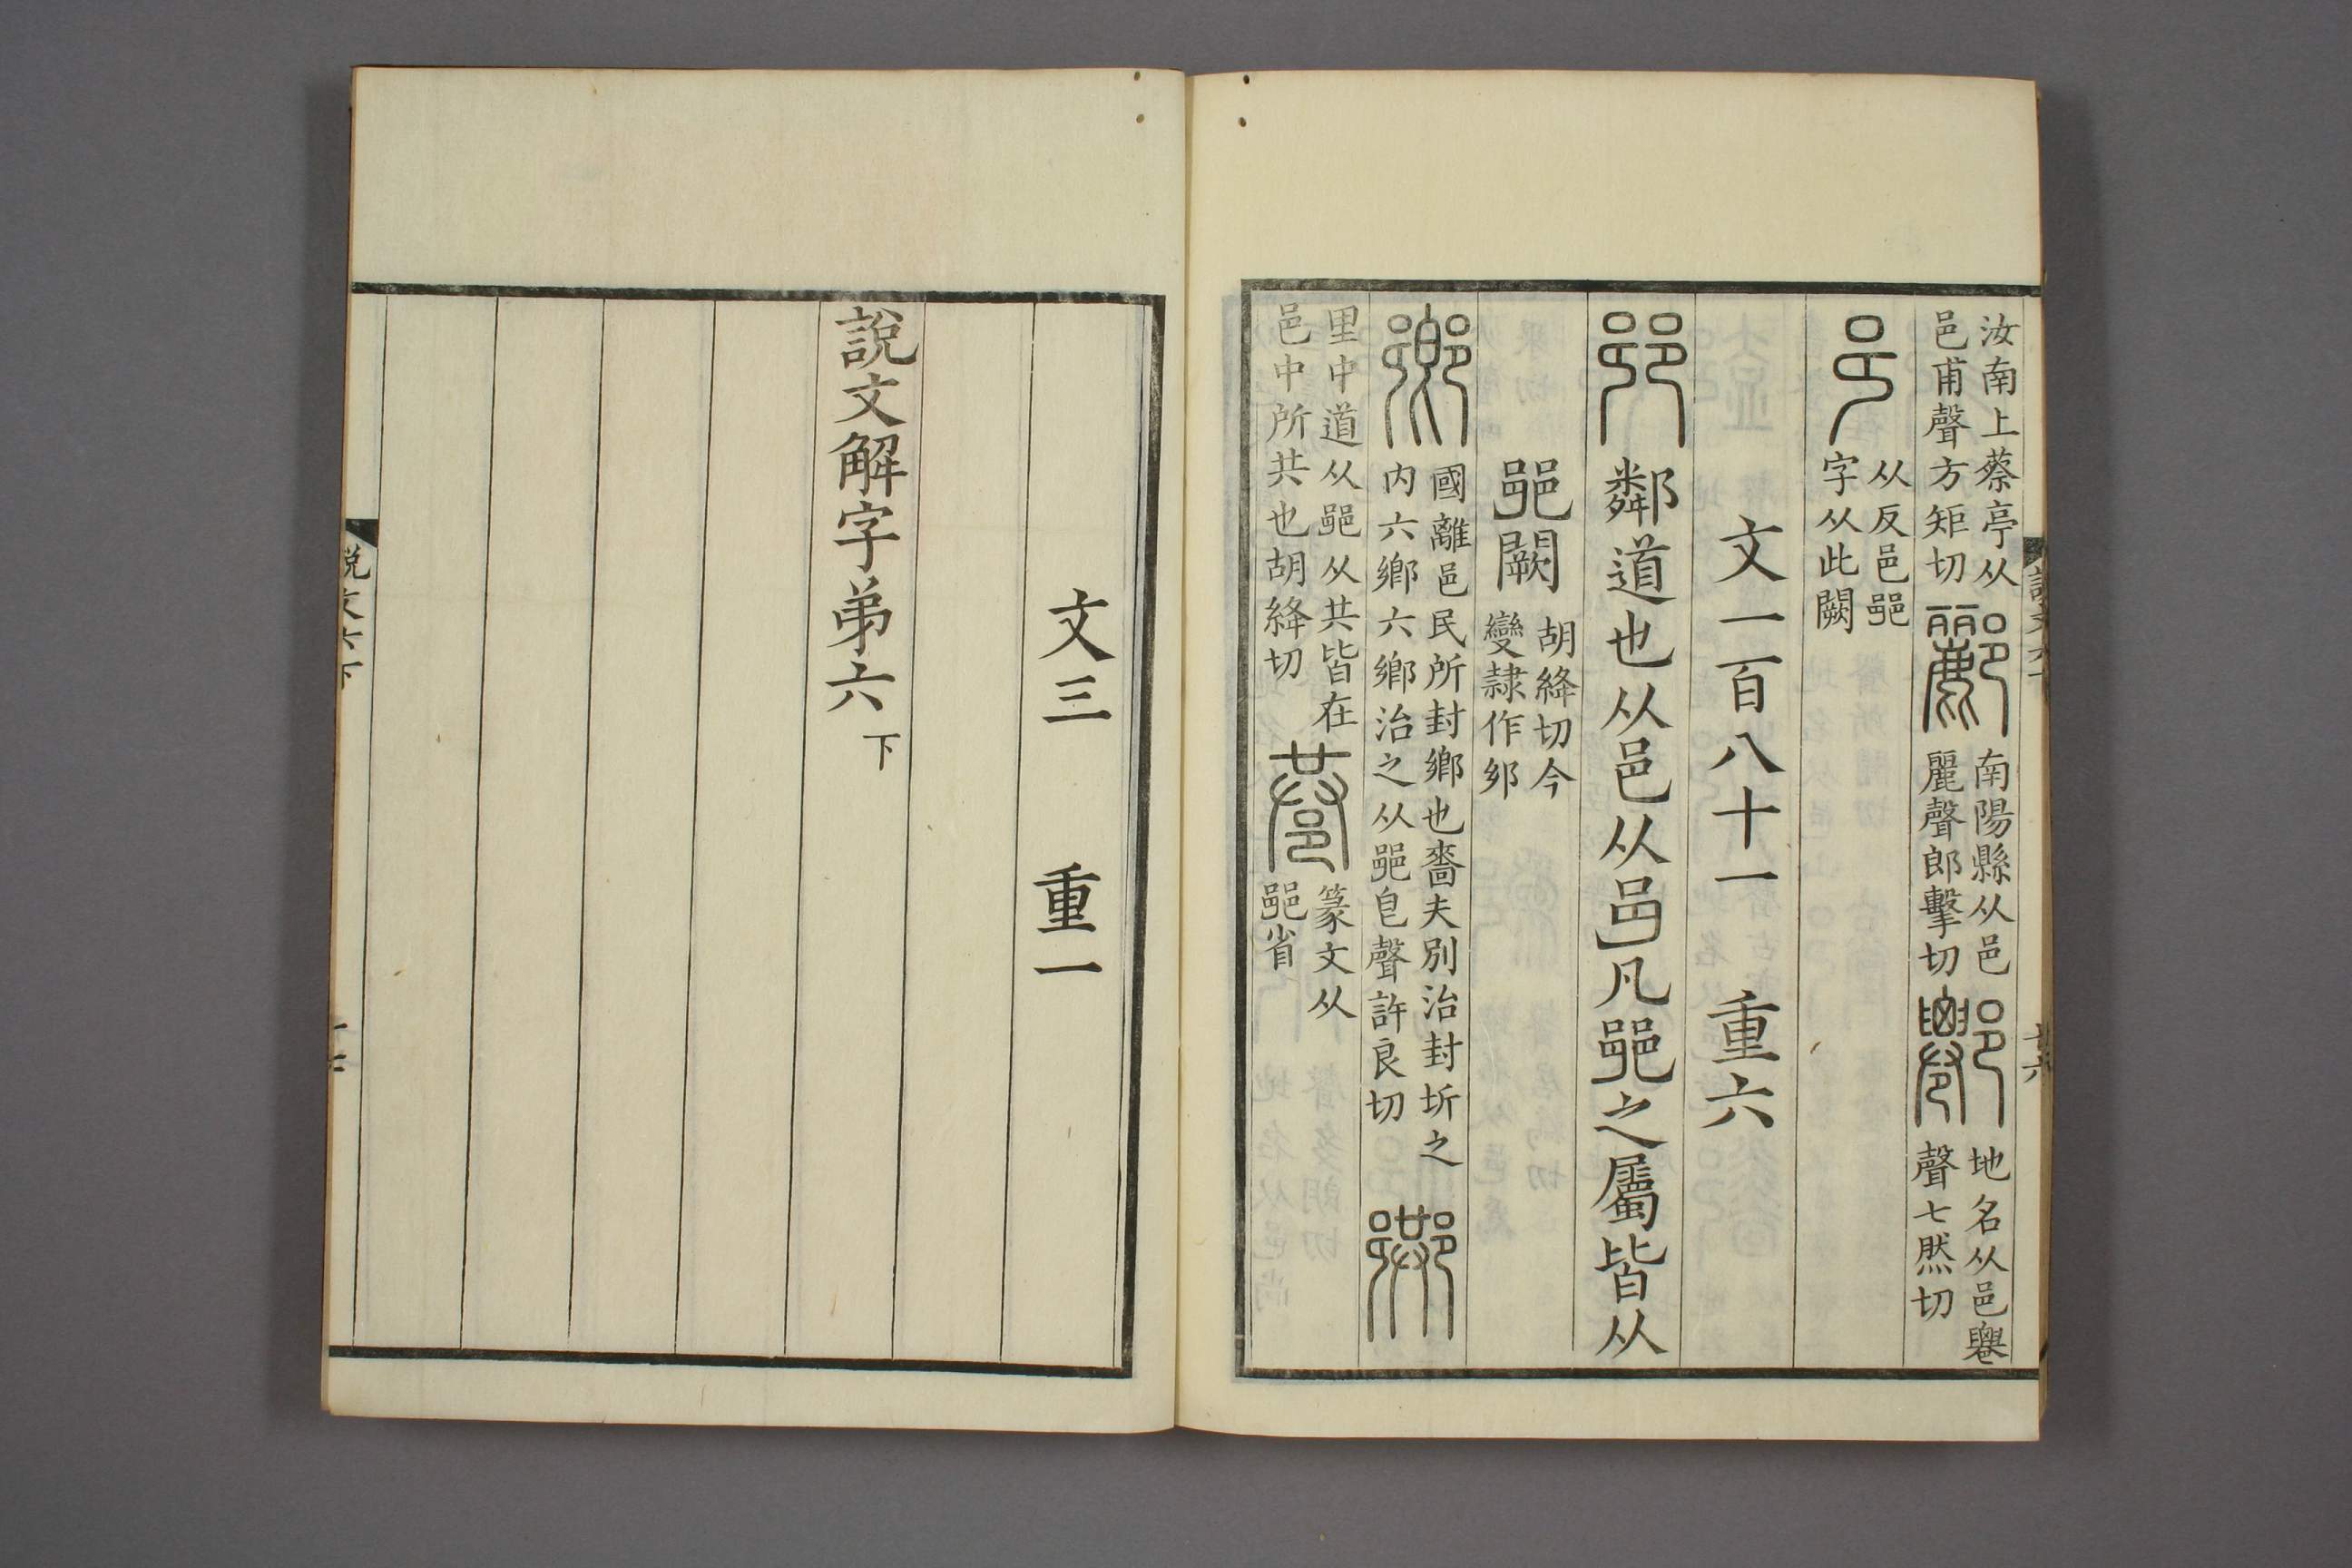 汝南上蔡亭从
邑甫聲方矩切
酈
南陽縣从邑
麗聲郎擊切
地名从邑䙴
聲七然切
从反邑𨛜
字从此闕
文一百八十一 重六
𨛜
鄰道也从邑从邑凡𨛜之屬皆从
𨛜闕
胡絳切今
變隸作𨙨
鄉
國離邑民所封鄉也嗇夫別治封圻之
内六鄉六鄉治之从𨛜皀聲許良切
里中道从𨛜从共皆在
邑中所共也胡絳切
巷
篆文从
𨛜省
說文六下
十六
文三 重一
說文解字弟六 下
說文六下